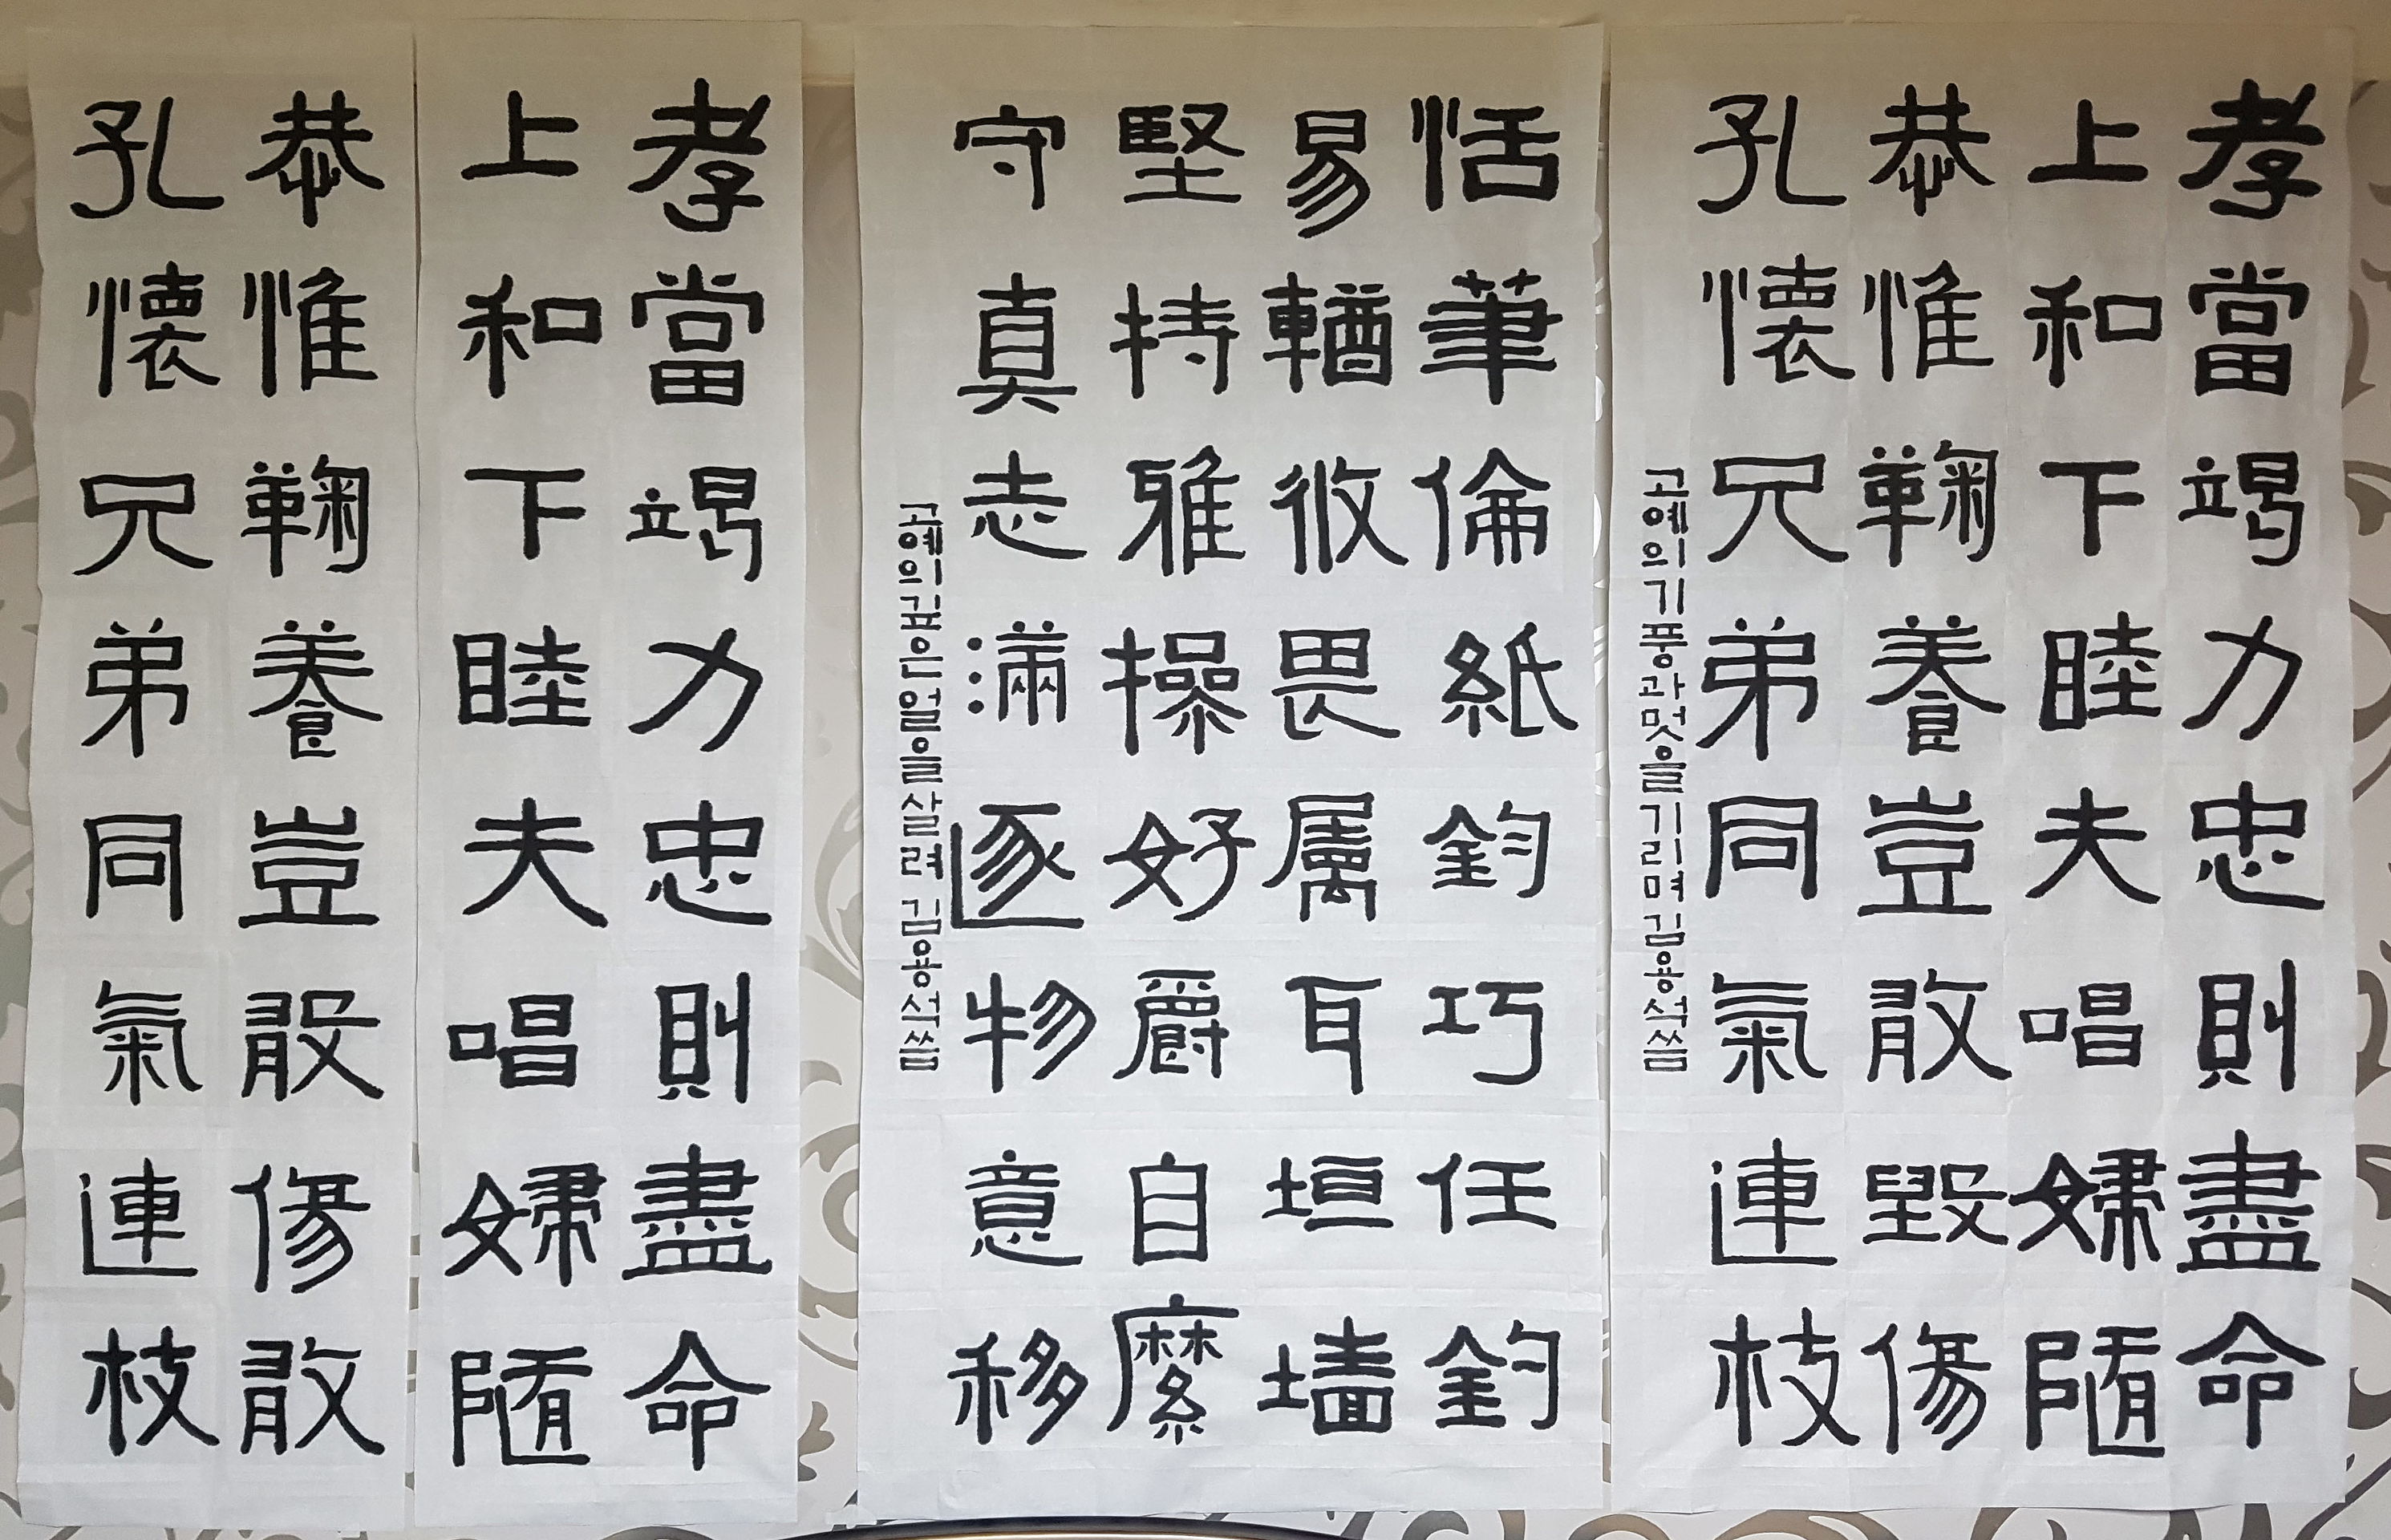 孝當竭力忠則盡命
上和下睦夫唱婦隨
恭惟鞠養豈敢毀傷
孔懷兄弟同氣連枝
고예의기풍과멋을기리며김용석씀
恬筆倫紙鈞巧任釣
易輶攸畏屬耳垣墻
堅持雅操好爵自縻
守真志滿逐物意移
고예의깊은얼을살려 김용석씀
孝當竭力忠則盡命
上和下睦夫唱婦隨
恭惟鞠養豈敢傷敢
孔懷兄弟同氣連枝